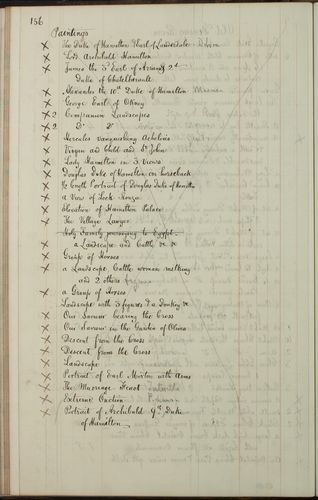 156
Paintings
x The Duke of Hamilton & Earl of Lauderdale
x Lord Archibald Hamilton
x James the 3d Earl of Arran & 2d
Duke of Chatelherault
x Alexander the 10th Duke of Hamilton
x George Earl of Orkney
x 2 Companion Landscapes
x 2 Do Do
x Hercules vanquishing Achelous
x Virgin and Child and St John
x Lady Hamilton in 3 views
x Douglas Duke of Hamilton on horseback
x length Portrait of Douglas Duke of Hamilton
x a View of Loch
x Elevation of Hamilton Palace
x The Village Lawyer
Holy Family journeying to Egypt
x a Landscape and Cattle &c &c
x Group of Horses
x a Landscape Cattle woman milking
and 2 others
x a Group of Horses
Landscape with 3 figures & a Donkey &c
x Our Saviour bearing the Cross
x Our Saviour in the Garden of Olives
x Descent from the Cross
x Descent from the Cross
x Landscape
x Portrait of Earl with arms
x The Marriage Feast
x Extreme Unction
x Portrait of Archibald 9th Duke
of Hamilton